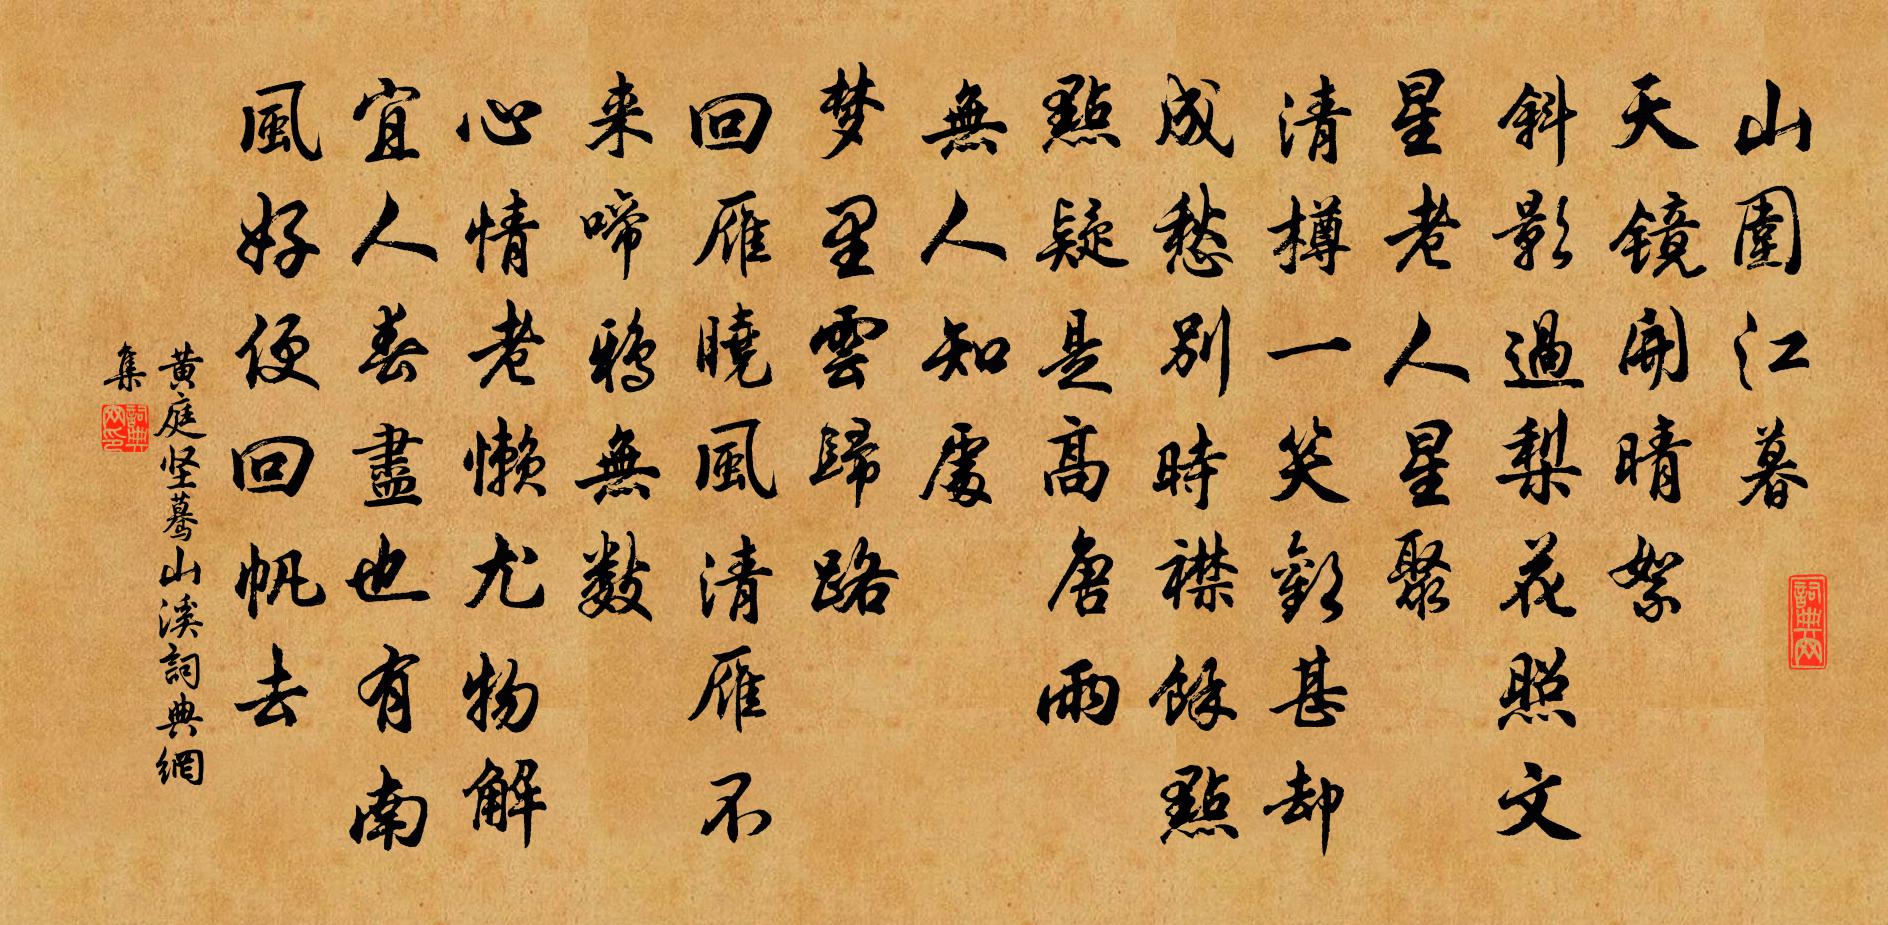 山圍江暮
天鏡開晴絮
斜影過梨花照文
星老人星聚
清樽一笑歡甚却
成愁別時襟餘點
點疑是高唐雨
無人知處
梦里雲歸路
回雁曉風清雁不
来啼鴉無数
心情老懒尤物解
宜人春盡也有南
風好便回帆去
黄庭坚驀山溪詞典網
集
詞典网
詞典网印